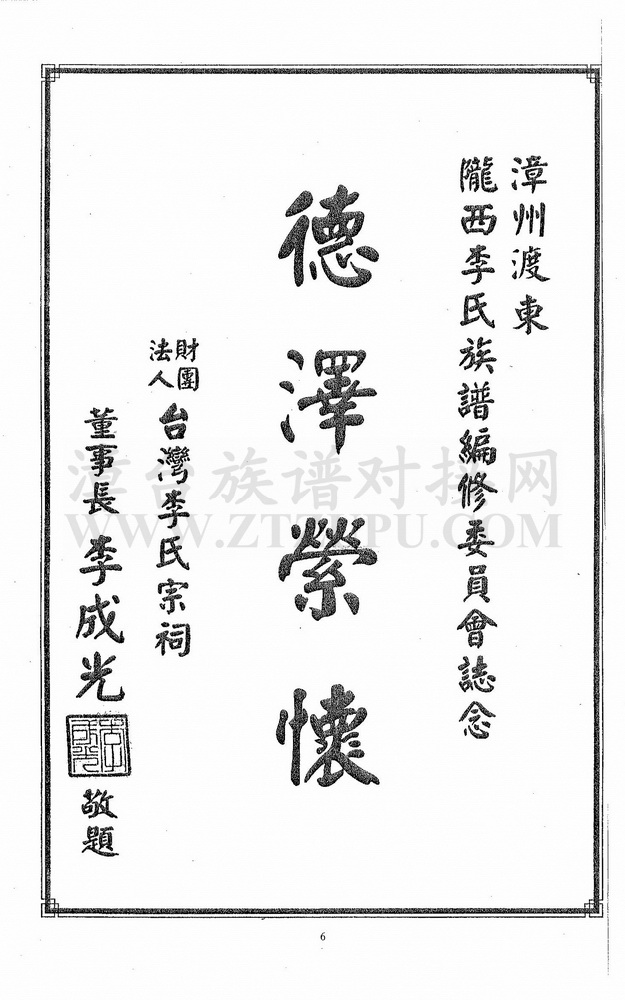 漳州渡東
隴西李氏族譜編修委員會誌念
德澤縈懷
財團法人台灣李氏宗祠
董事長李成光
敬題
漳台族谱对接网
6